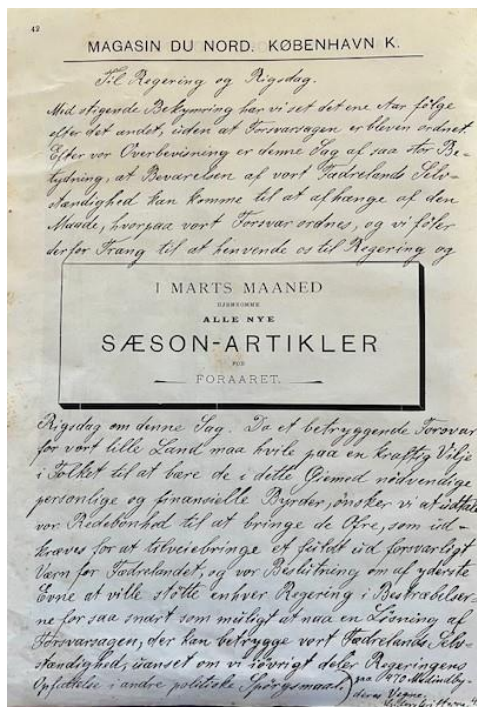 42
MAGASIN DU NORD. KØBENHAVN K.
Til Regering og Rigsdag.
Med stigende Bekymring har vi set det ene Aar følge
efter det andet, uden at Forsvarssagen er bleven ordnet.
Efter vor Overbevisning er denne Sag af saa stor Be-
tydning, at Bevarelsen af vort Fædrelands Selv-
stændighed kan komme til at afhænge af den
Maade, hvorpaa vort Forsvar ordnes, og vi føler
derfor Trang til at henvende os til Regering og
I MARTS MAANED
HJEMKOMME
ALLE NYE
SÆSON-ARTIKLER
FOR
FORAARET.
Rigsdag om denne Sag. Da et betryggende Forsvar
for vort lille Land maa hvile paa en kraftig Vilje
i Folket til at bære de i dette Øiemed nødvendige
personlige og finansielle Byrder, ønsker vi at udtale
vor Redebonhed til at bringe de Ofre, som ud-
kræves for at tilveiebringe et fuldt ud forsvarligt
Værn for Fædrelandet, og vor Beslutning om af yderste
Evne at ville støtte enhver Regering i Bestræbelser-
ne for saa snart som muligt at naa en Løsning af
Forsvarssagen, der kan betrygge vort Fædrelands Selv-
stændighed, uanset om vi iøvrigt deler Regeringens
Opfattelse i andre politiske Spørgsmaal.
paa 970 Medindby-
deres Vegne.